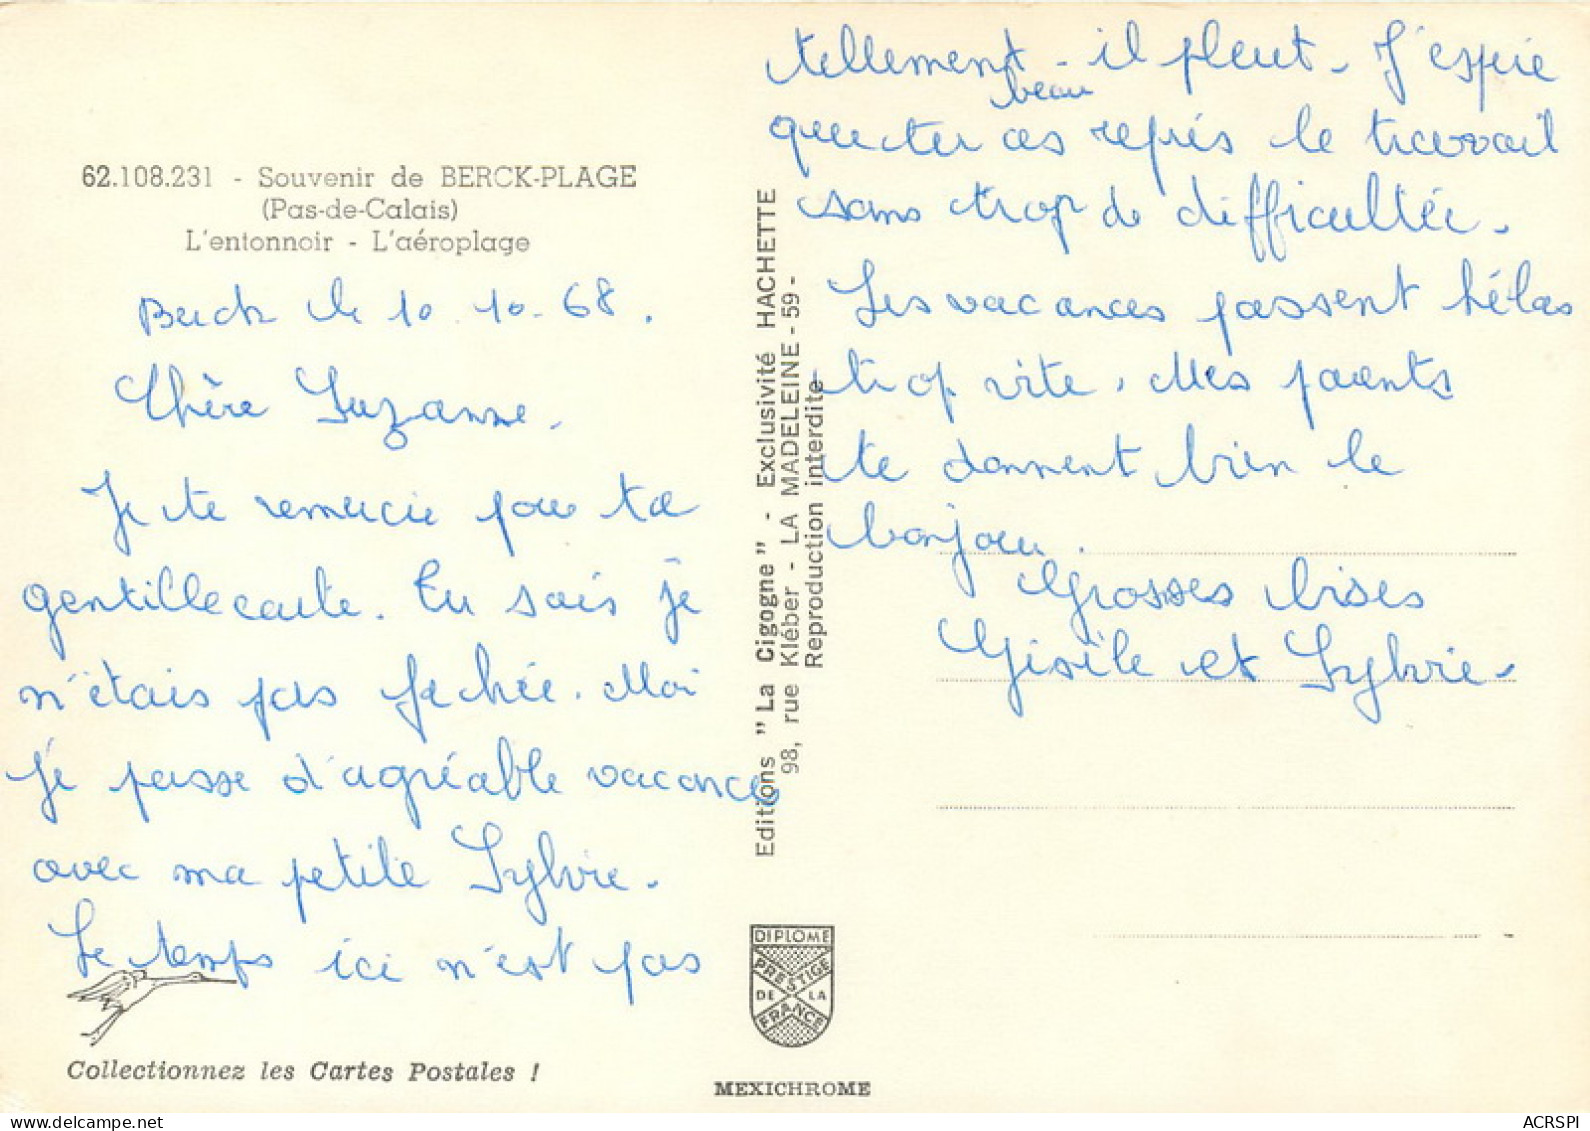 62.108.231 - Souvenir de BERCK-PLAGE
(Pas-de-Calais)
L'entonnoir - L'aéroplage
Berck le 10.10.68.
Chère Suzanne.
Je te remercie pour ta
gentille carte. Tu sais je
n'étais pas fachée. Moi
je passe d'agréable vacances
avec ma petite Sylvie.
Le temps ici n'est pas
Collectionnez les Cartes Postales !
Editions "La Cigogne" - Exclusivité HACHETTE
98, rue Kléber - LA MADELEINE - 59 -
Reproduction interdite
DIPLOME
PRESTIGE
DE LA
FRANCE
MEXICHROME
tellement beau - il pleut - J'espère
que tu as repris le travail
sans trop de difficultée.
Les vacances passent hélas
trop vite. Mes parents
te donnent bien le
bonjour.
Grosses bises
Gisèle et Sylvie -
ACRSPI